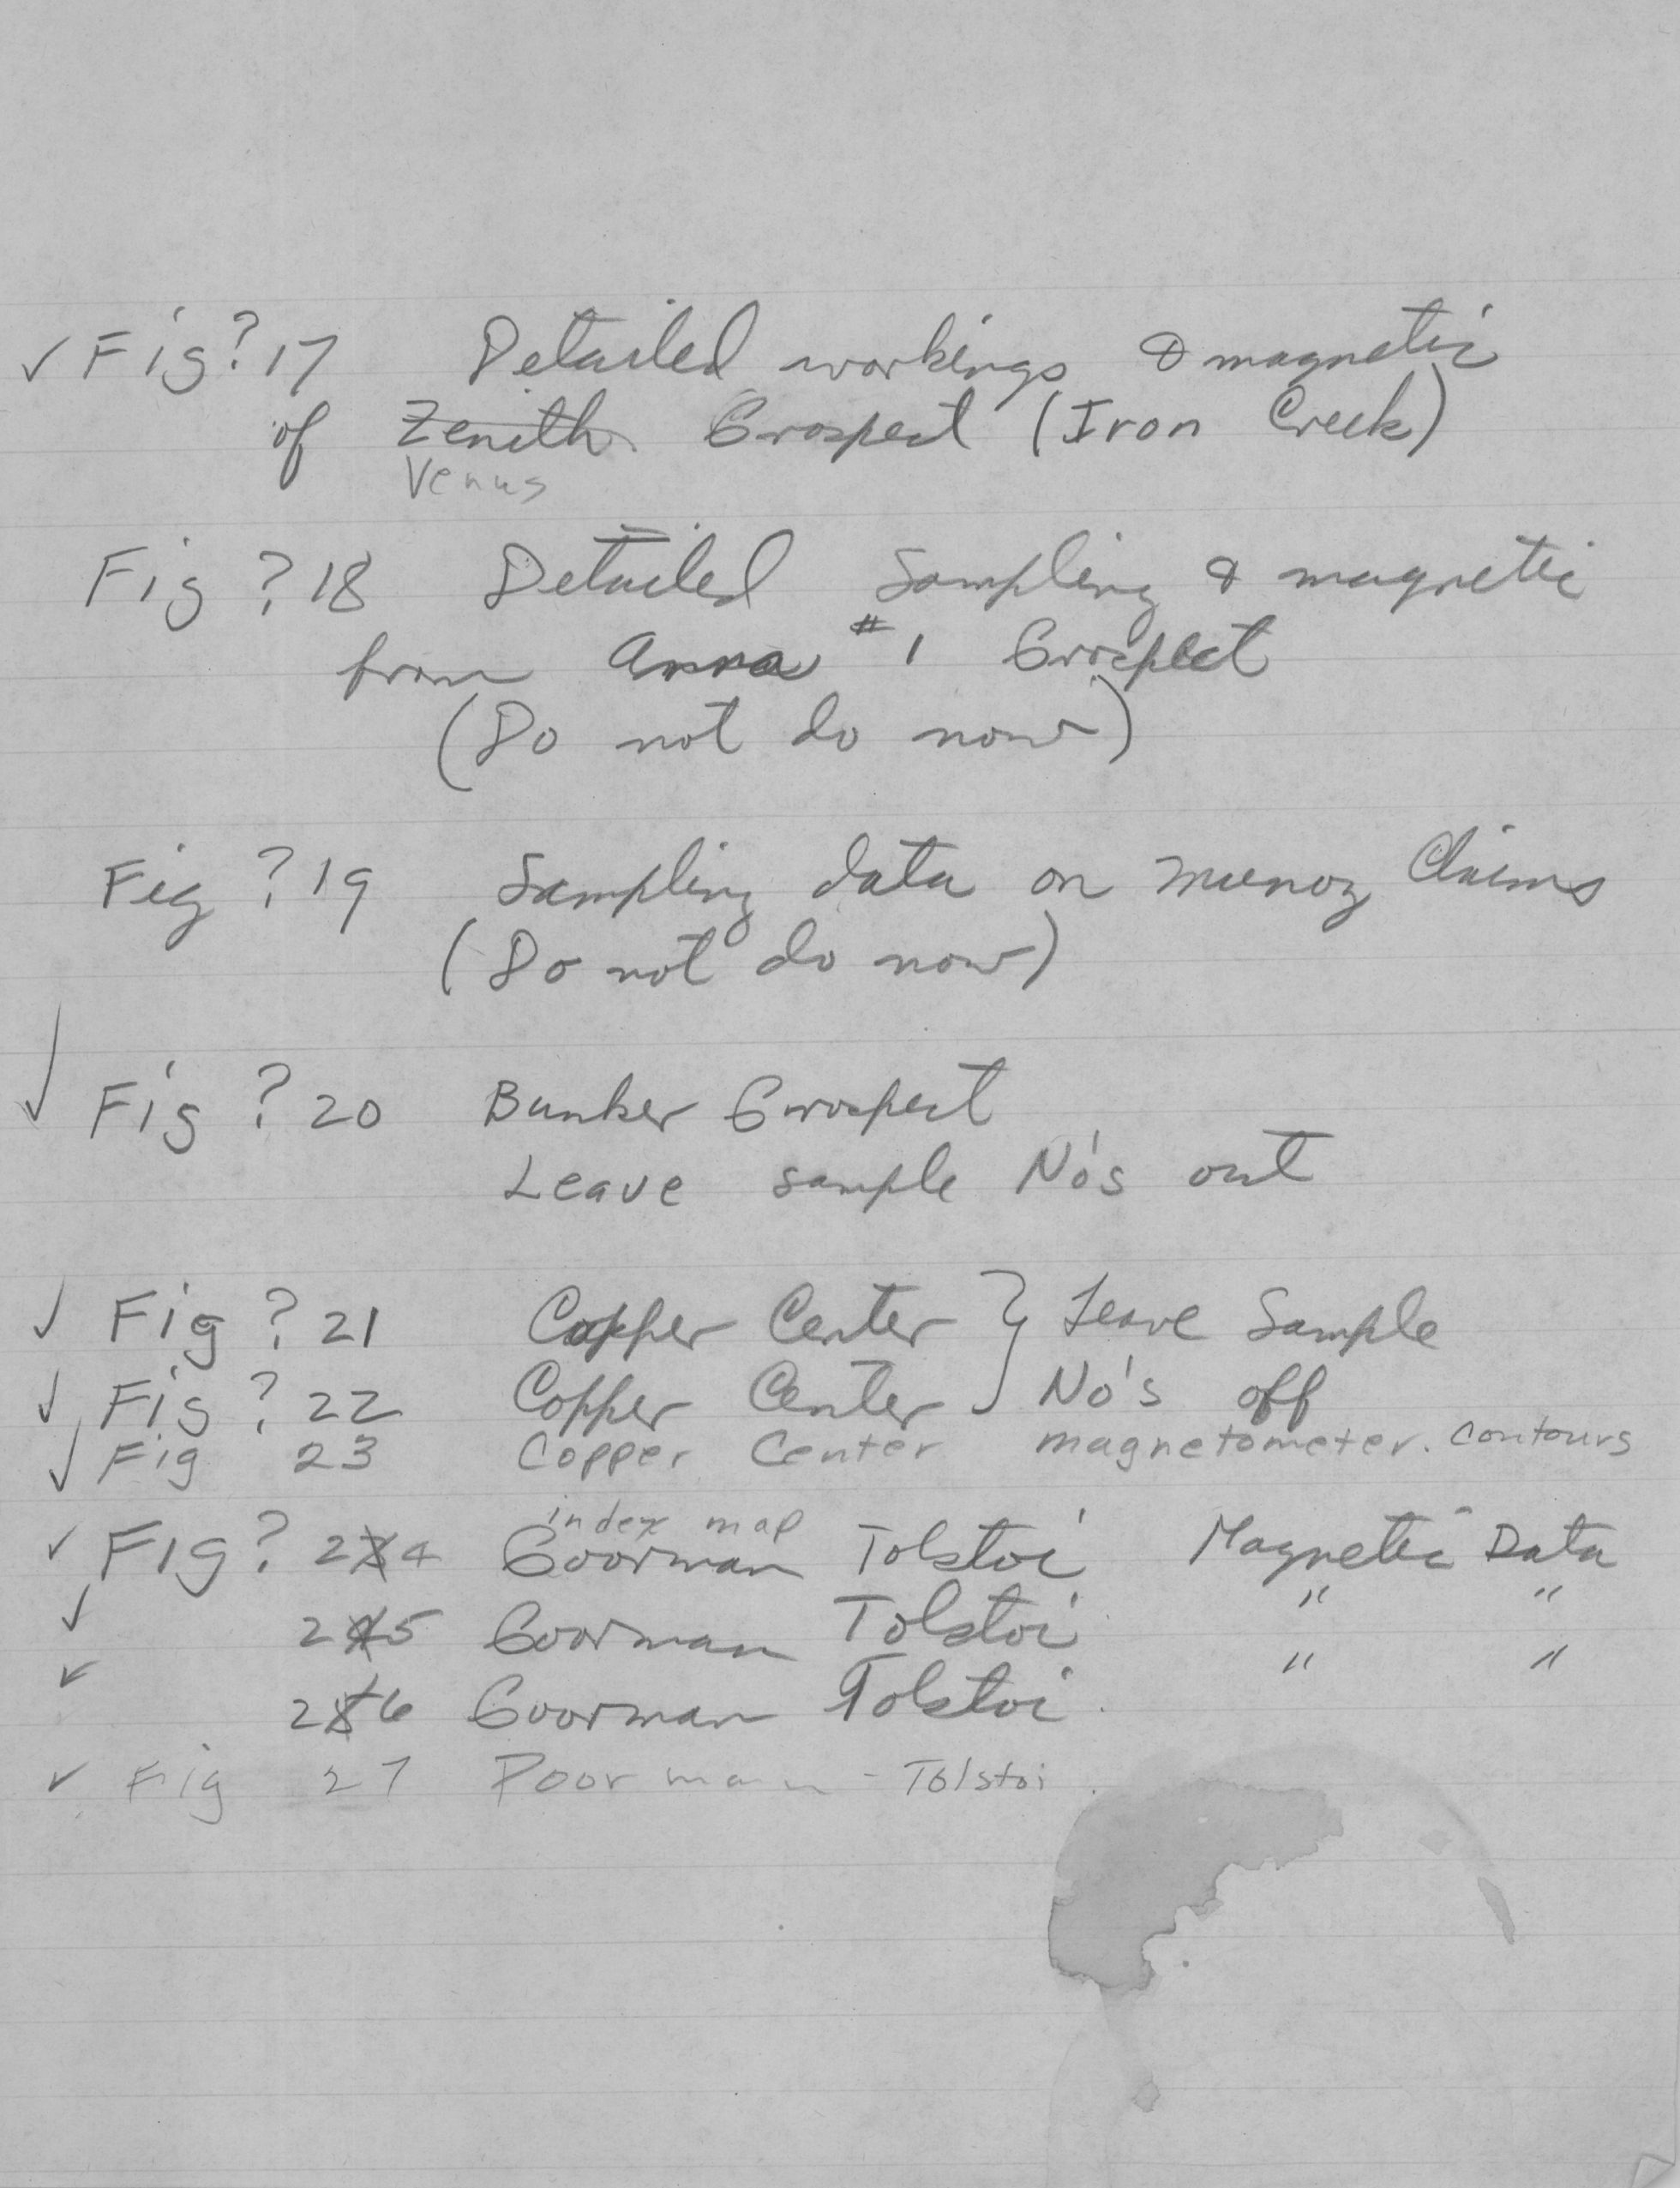 ✓ Fig ? 17 Detailed workings & magnetic
of Zenith Prospect (Iron Creek)
Venus
Fig ? 18 Detailed Sampling & magnetic
from Anna #1 Prospect
(Do not do now)
Fig ? 19 Sampling data on Munoz Claims
(Do not do now)
✓ Fig ? 20 Bunker Prospect
Leave sample No's out
✓ Fig ? 21 Copper Center } Leave Sample
✓ Fig ? 22 Copper Center } No's off
✓ Fig 23 Copper Center magnetometer contours
index map
✓ Fig ? 24 Poorman Tolstoi Magnetic Data
✓ 25 Poorman Tolstoi " "
✓ 26 Poorman Tolstoi " "
✓ Fig 27 Poorman - Tolstoi